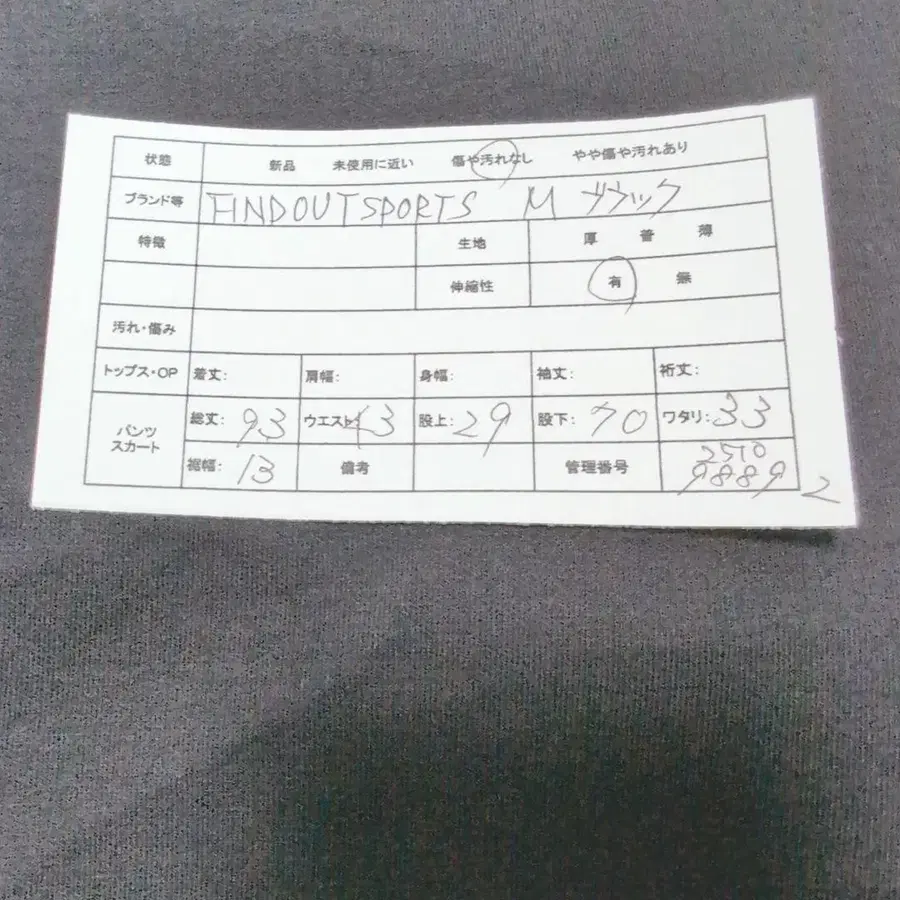 状態 新品 未使用に近い 傷や汚れなし やや傷や汚れあり
ブランド等 FINDOUTSPORTS M ブラック
特徴 生地 厚 普 薄
伸縮性 有 無
汚れ・傷み
トップス・OP 着丈: 肩幅: 身幅: 袖丈: 裄丈:
パンツ スカート 総丈: 93 ウエスト 股上: 29 股下: 70 ワタリ: 33
裾幅: 13 備考 管理番号 2510
9889 2